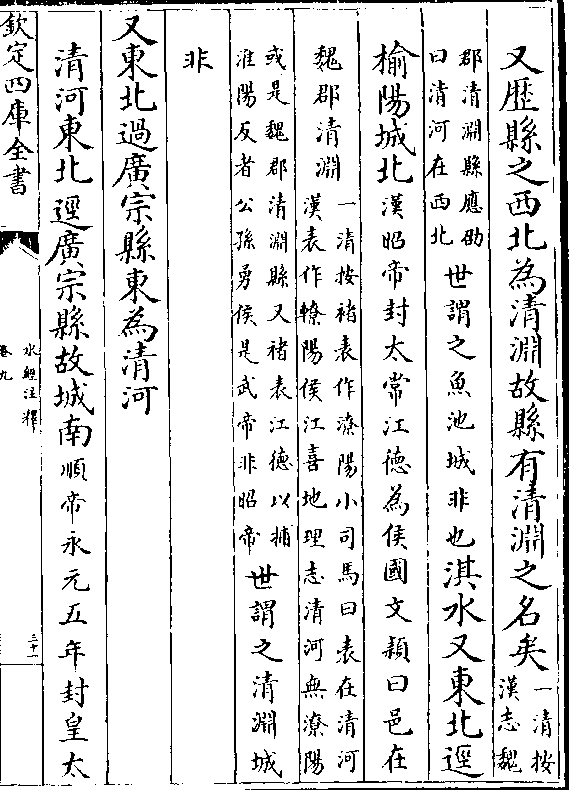 又歷縣之西北為清淵故縣有清淵之名矣一清按漢志魏
郡清淵縣應劭曰清河在西北世謂之魚池城非也淇水又東北逕
榆陽城北漢昭帝封太常江徳為侯國文頴曰邑在
魏郡清淵一清按褚表作潦陽小司馬曰表在清河漢表作轑陽侯江喜地理志清河無潦陽
或是魏郡清淵縣又褚表江徳以捕淮陽反者公孫勇侯是武帝非昭帝世謂之清淵城
非
又東北過廣宗縣東為清河
清河東北逕廣宗縣故城南順帝永元五年封皇太
欽定四庫全書
水經注釋
卷九
三十一